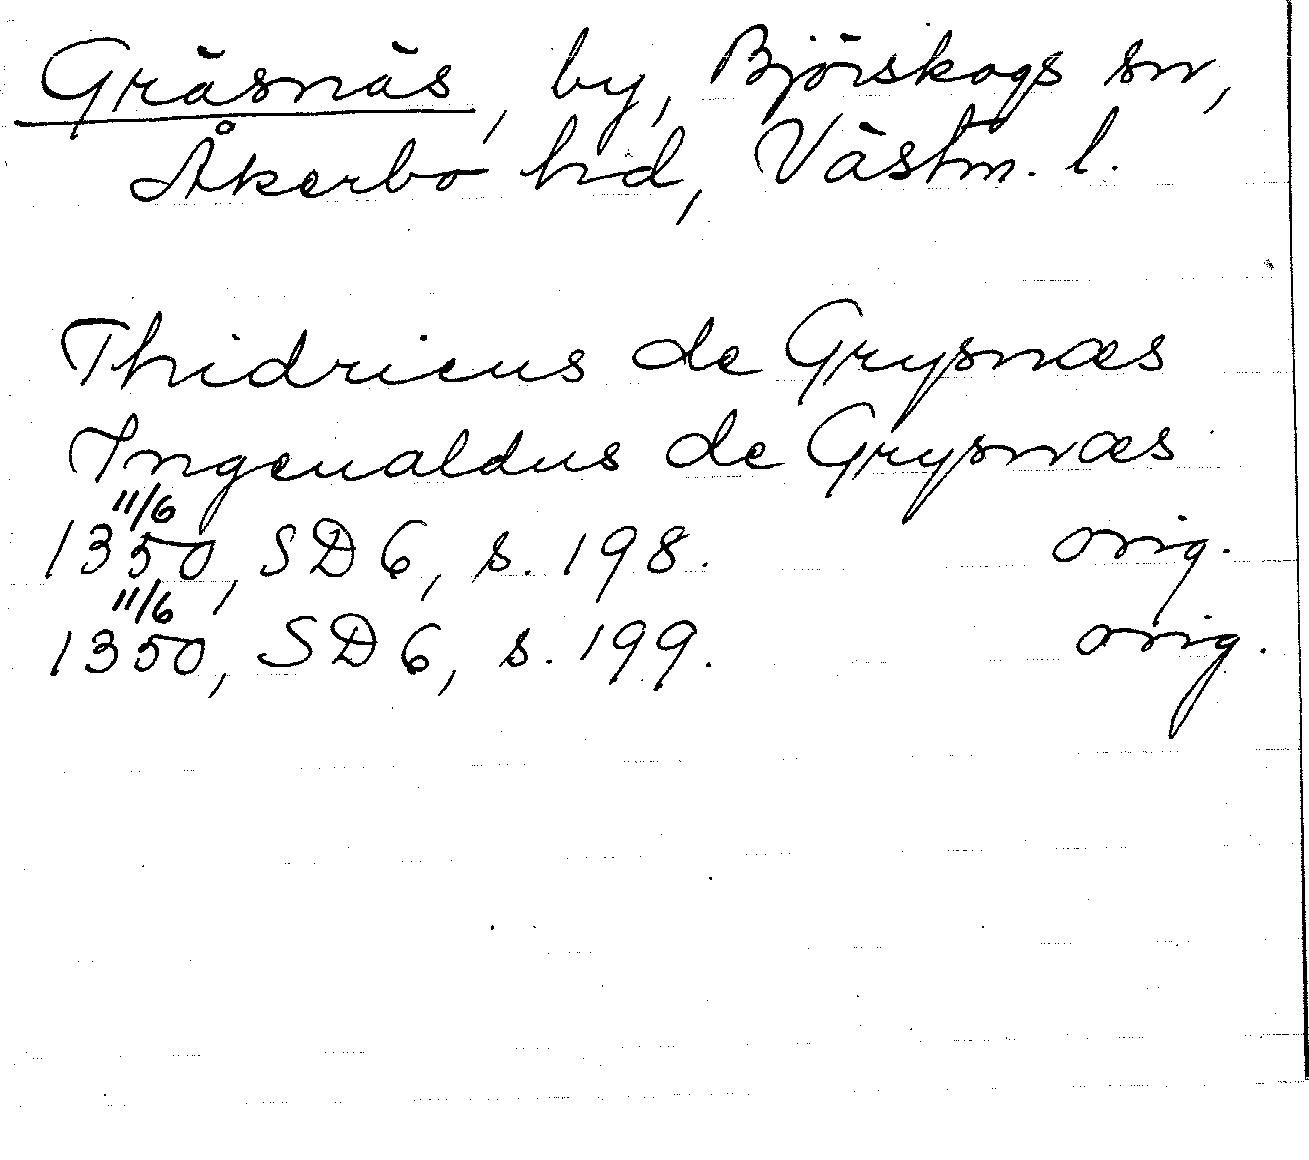 Gräsnäs, by, Björskogs sn,
Åkerbo hd, Västm. l.
Thidricus de Grysnæs
Ingeualdus de Grysnæs
11/6
1350, SD 6, s. 198. orig.
11/6
1350, SD 6, s. 199. orig.